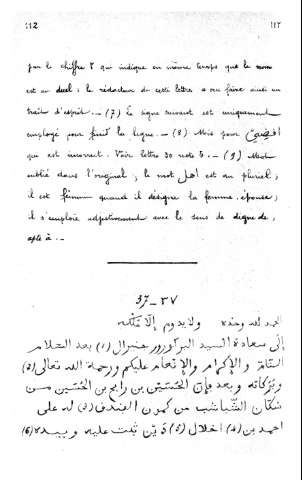 112 ١١٢
par le chiffre 2 qui indique en même temps que le nom
est au duel; le rédacteur de cette lettre a cru faire ainsi un
trait d'esprit. — (7) Ce signe suivant est uniquement
employé pour finir la ligne. — (8) Mis pour
qui est incorrect. Voir lettre 30 note 5. — (9) Mot
oublié dans l'original; le mot اهل est au pluriel;
il est féminin quand il désigne la femme, épouse;
il s'emploie adjectivement avec le sens de digne de,
apte à. —
37 — ٣٧
الحمد لله وحده ولا يدوم إلا ملكه
إلى سعادة السيد جنرال (1) بعد السلام
التام والإكرام والإنعام عليكم ورحمة الله تعالى (2)
وبركاته وبعد فإن الحسين بن رابح بن الحسين من
سكان الشباشب من كمون (3) له على
احمد بن (4) اخلال (5) دين ثبت عليه وبيده (6)